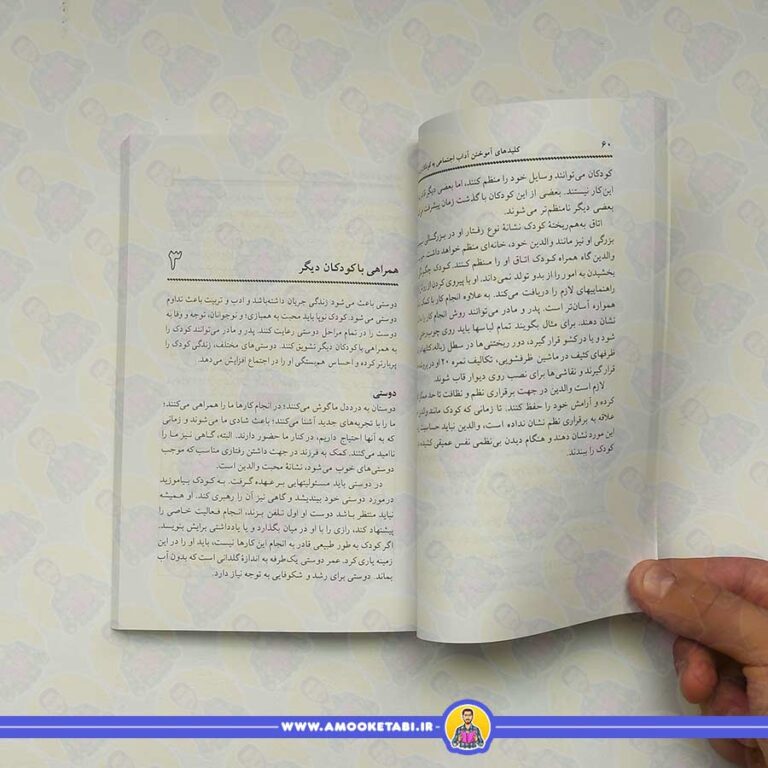 ۶۰
کلیدهای آموختن آداب اجتماعی به کودکان
کودکان می‌توانند وسایل خود را منظم کنند، اما بعضی دیگر قادر به
این‌کار نیستند. بعضی از این کودکان با گذشت زمان پیشرفت
بعضی دیگر نامنظم‌تر می‌شوند.
اتاق به‌هم‌ریختهٔ کودک نشانهٔ نوع رفتار او در بزرگسالی
بزرگی او نیز مانند والدین خود، خانه‌ای منظم خواهد داشت.
والدین گاه همراه کودک اتاق او را منظم کنند. کودک
بخشیدن به امور را از بدو تولد نمی‌داند. او با پیروی کردن از
راهنماییهای لازم را دریافت می‌کند. به علاوه انجام کار با کمک
همواره آسان‌تر است. پدر و مادر می‌توانند روش انجام کار را
نشان دهند. برای مثال بگویند تمام لباسها باید روی چوب‌رختی
شود و یا در کشو قرار گیرد، دور ریختنی‌ها در سطل زباله،
ظرفهای کثیف در ماشین ظرفشویی، تکالیف نمره ۲۰ او در پرونده
قرار گیرند و نقاشی‌ها برای نصب روی دیوار قاب شوند.
لازم است والدین در جهت برقراری نظم و نظافت تا حد
کرده و آرامش خود را حفظ کنند. تا زمانی که کودک مانند
علاقه به برقراری نظم نشان نداده است، والدین نباید حساسیت
این مورد نشان دهند و هنگام دیدن بی‌نظمی نفس عمیقی کشیده
کودک را ببندند.
۳
همراهی با کودکان دیگر
دوستی باعث می‌شود زندگی جریان داشته‌باشد و ادب و تربیت باعث تداوم
دوستی می‌شود. کودک نوپا باید محبت به همبازی؛ و نوجوانان، توجه و وفا به
دوست را در تمام مراحل دوستی رعایت کنند. پدر و مادر می‌توانند کودک را
به همراهی با کودکان دیگر تشویق کنند. دوستی‌های مختلف، زندگی کودک را
پربارتر کرده و احساس همبستگی او را در اجتماع افزایش می‌دهد.
دوستی
دوستان به درددل ما گوش می‌کنند؛ در انجام کارها ما را همراهی می‌کنند؛
ما را با تجربه‌های جدید آشنا می‌کنند؛ باعث شادی ما می‌شوند و زمانی
که به آنها احتیاج داریم، در کنار ما حضور دارند. البته، گاهی نیز ما را
ناامید می‌کنند. کمک به فرزند در جهت داشتن رفتاری مناسب که موجب
دوستی‌های خوب می‌شود، نشانهٔ محبت والدین است.
در دوستی باید مسئولیتهایی برعهده گرفت. به کودک بیاموزید
درمورد دوستی خود بیندیشد و گاهی نیز آن را رهبری کند. او همیشه
نباید منتظر باشد دوست او اول تلفن بزند، انجام فعالیت خاصی را
پیشنهاد کند، رازی را با او در میان بگذارد و یا یادداشتی برایش بنویسد.
اگر کودک به طور طبیعی قادر به انجام این کارها نیست، باید او را در این
زمینه یاری کرد. عمر دوستی یک‌طرفه به اندازهٔ گلدانی است که بدون آب
بماند. دوستی برای رشد و شکوفایی به توجه نیاز دارد.
WWW.AMOOKETABI.IR